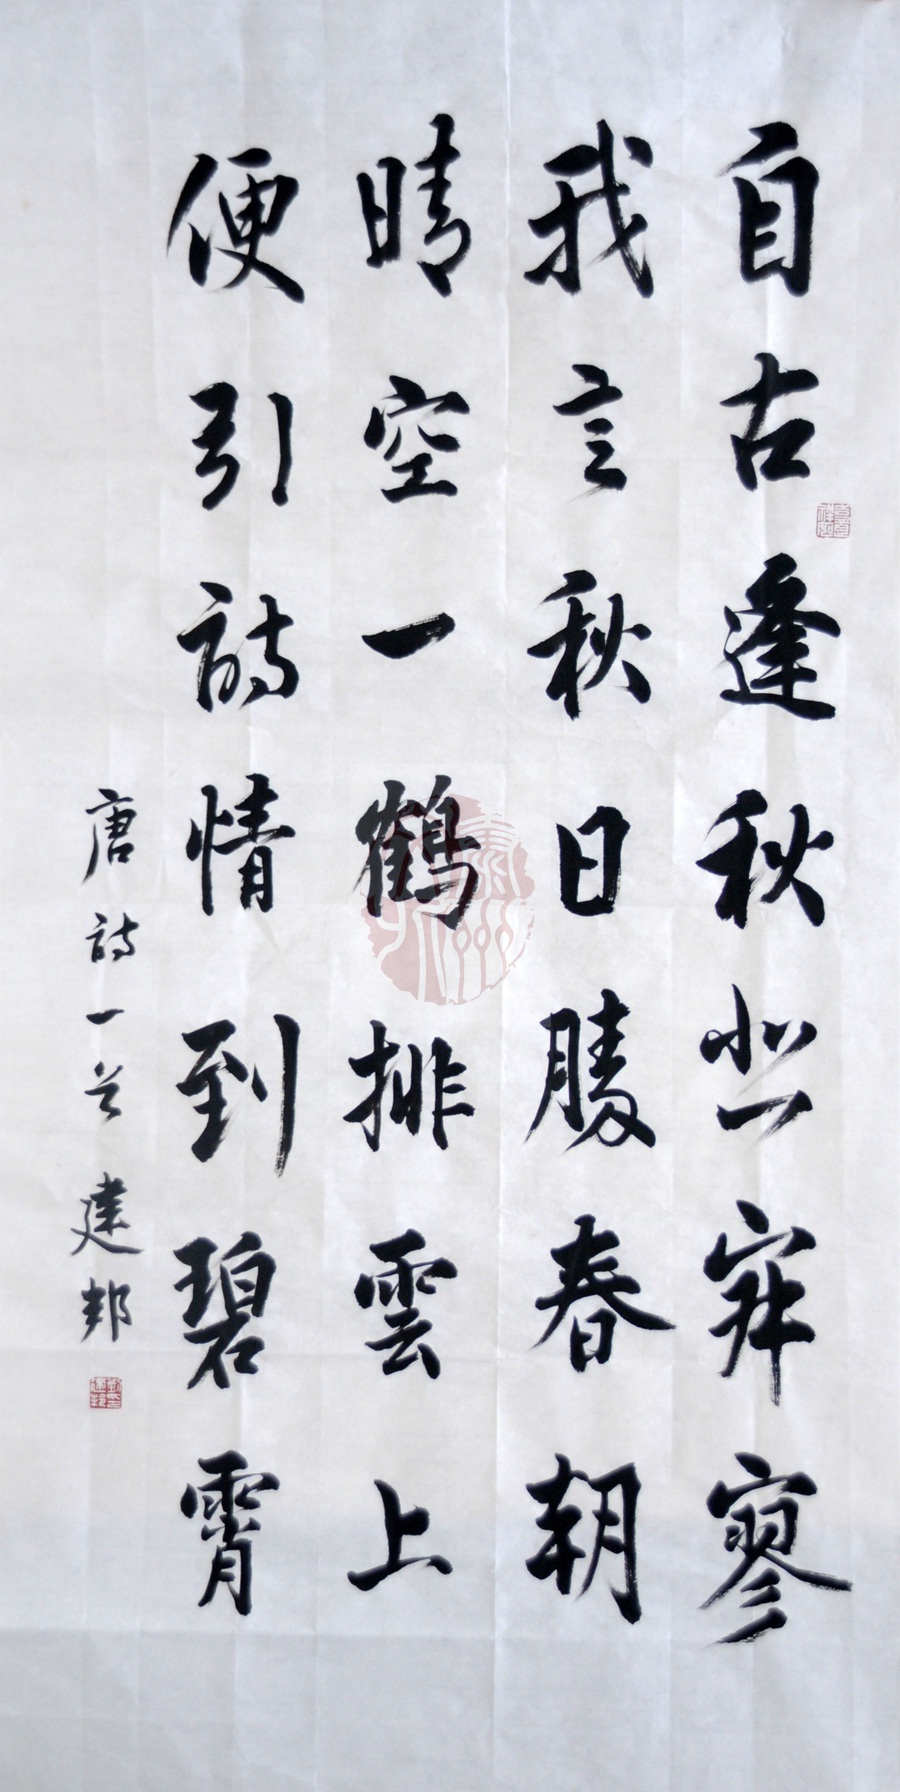 自古逢秋悲寂寥
我言秋日勝春朝
晴空一鶴排雲上
便引詩情到碧霄
唐詩一首 建邦